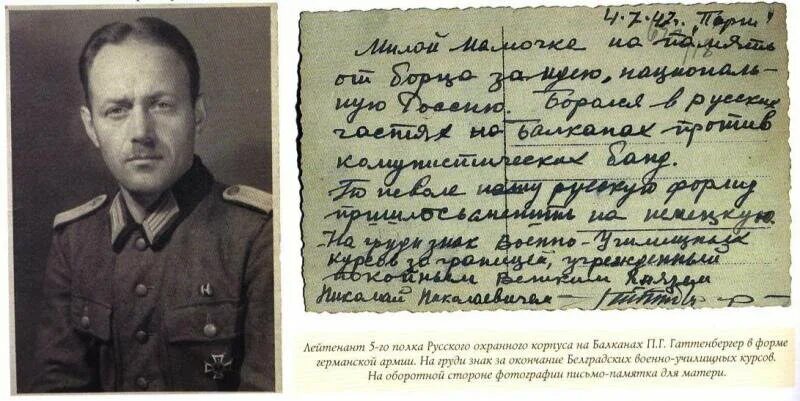 4.7.47г. Париж
Милой мамочке на память
от борца за идею, националь-
ную Россию. Боролся в русских
частях на Балканах против
комунистических банд.
По неволе нашу русскую форму
пришлось сменить на немецкую.
На груди знак Военно-Училищных
курсов за границей, учрежденный
покойным Великим Князем
Николаем Николаевичем
Лейтенант 5-го полка Русского охранного корпуса на Балканах П.Г. Гаттенбергер в форме
германской армии. На груди знак за окончание Белградских военно-училищных курсов.
На оборотной стороне фотографии письмо-памятка для матери.